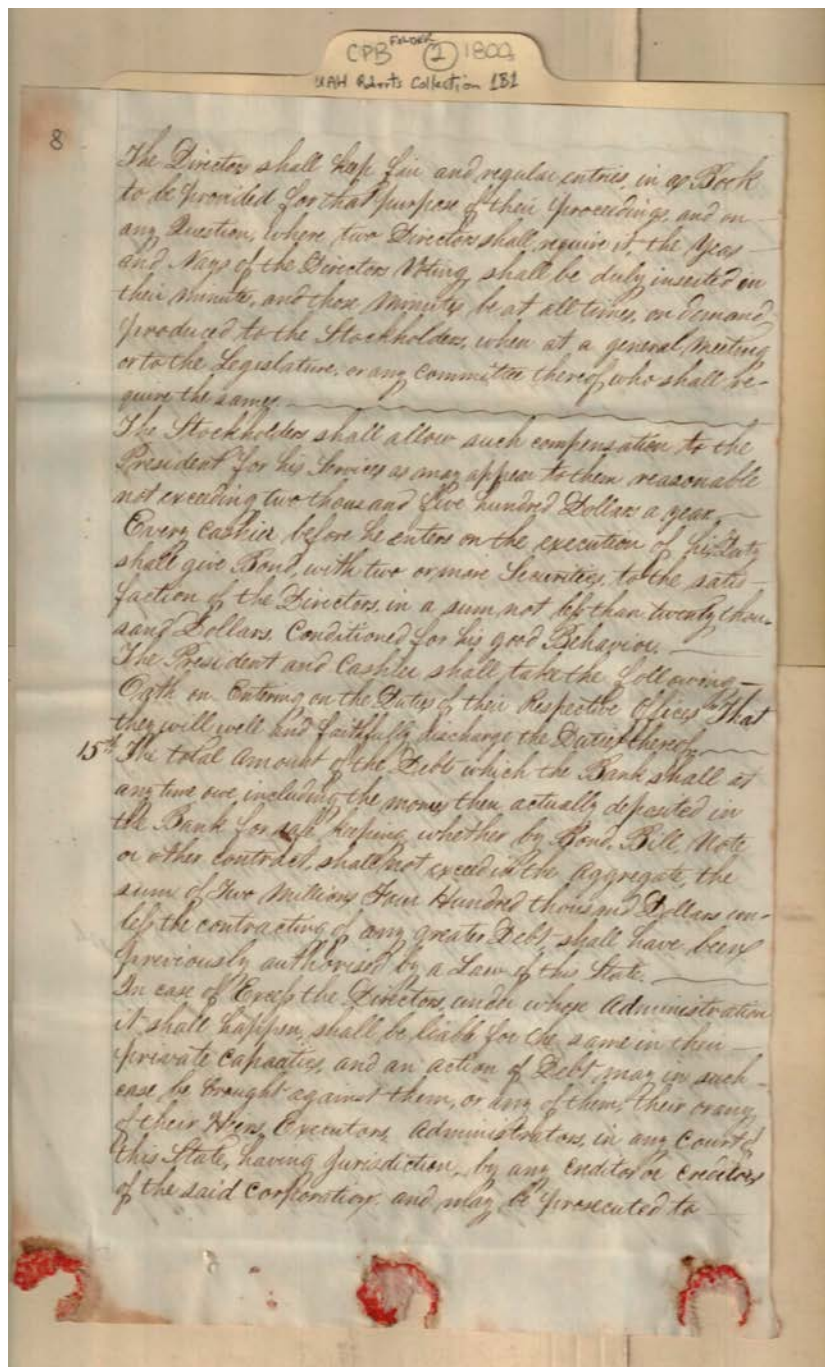 CPB FOLDER (2) 1800s
UAH Roberts Collection 1B1
8
The Directors shall keep fair and regular entries, in a Book
to be provided for that purpose of their proceedings, and on
any Question, where two Directors shall require it, the Yeas
and Nays of the Directors Voting, shall be duly inserted in
their minutes, and those minutes be at all times, on demand,
produced to the Stockholders, when at a general Meeting
or to the Legislature, or any Committee thereof, who shall re-
quire the same.
The Stockholders shall allow such compensation to the
President for his Services as may appear to them reasonable
not exceeding two thousand five hundred Dollars a year.
Every Cashier before he enters on the execution of his Duty
shall give Bond, with two or more Securities, to the satis-
faction of the Directors, in a sum not less than twenty thou-
sand Dollars, Conditioned for his good Behavior.
The President and Cashier shall take the following
Oath on Entering on the Duties of their Respective Offices That
they will well and faithfully discharge the Duties thereof.
15th The total Amount of the Debt which the Bank shall at
any time owe, including the money then actually deposited in
the Bank for safe keeping, whether by Bond, Bill, Note
or other contract, shall not exceed in the aggregate, the
sum of Two Millions Four Hundred thousand Dollars un-
less the contracting of any greater Debt, shall have been
previously authorised by a Law of this State.
In case of Excess the Directors, under whose Administration
it shall happen, shall be liable for the same in their
private Capacities, and an action of Debt may in such
case be brought against them, or any of them, their or any
of their Heirs, Executors, Administrators, in any Court of
this State, having Jurisdiction, by any Creditor or Creditors
of the said Corporation, and may be prosecuted to